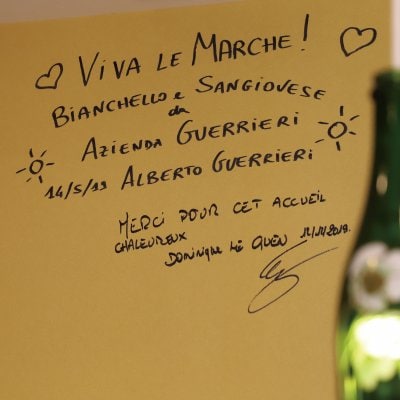 VIVA LE MARCHE!
BIANCHELLO e SANGIOVESE
da
AZIENDA GUERRIERI
14/5/19 ALBERTO GUERRIERI
MERCI POUR CET ACCUEIL
CHALEUREUX
DOMINIQUE LE QUEN